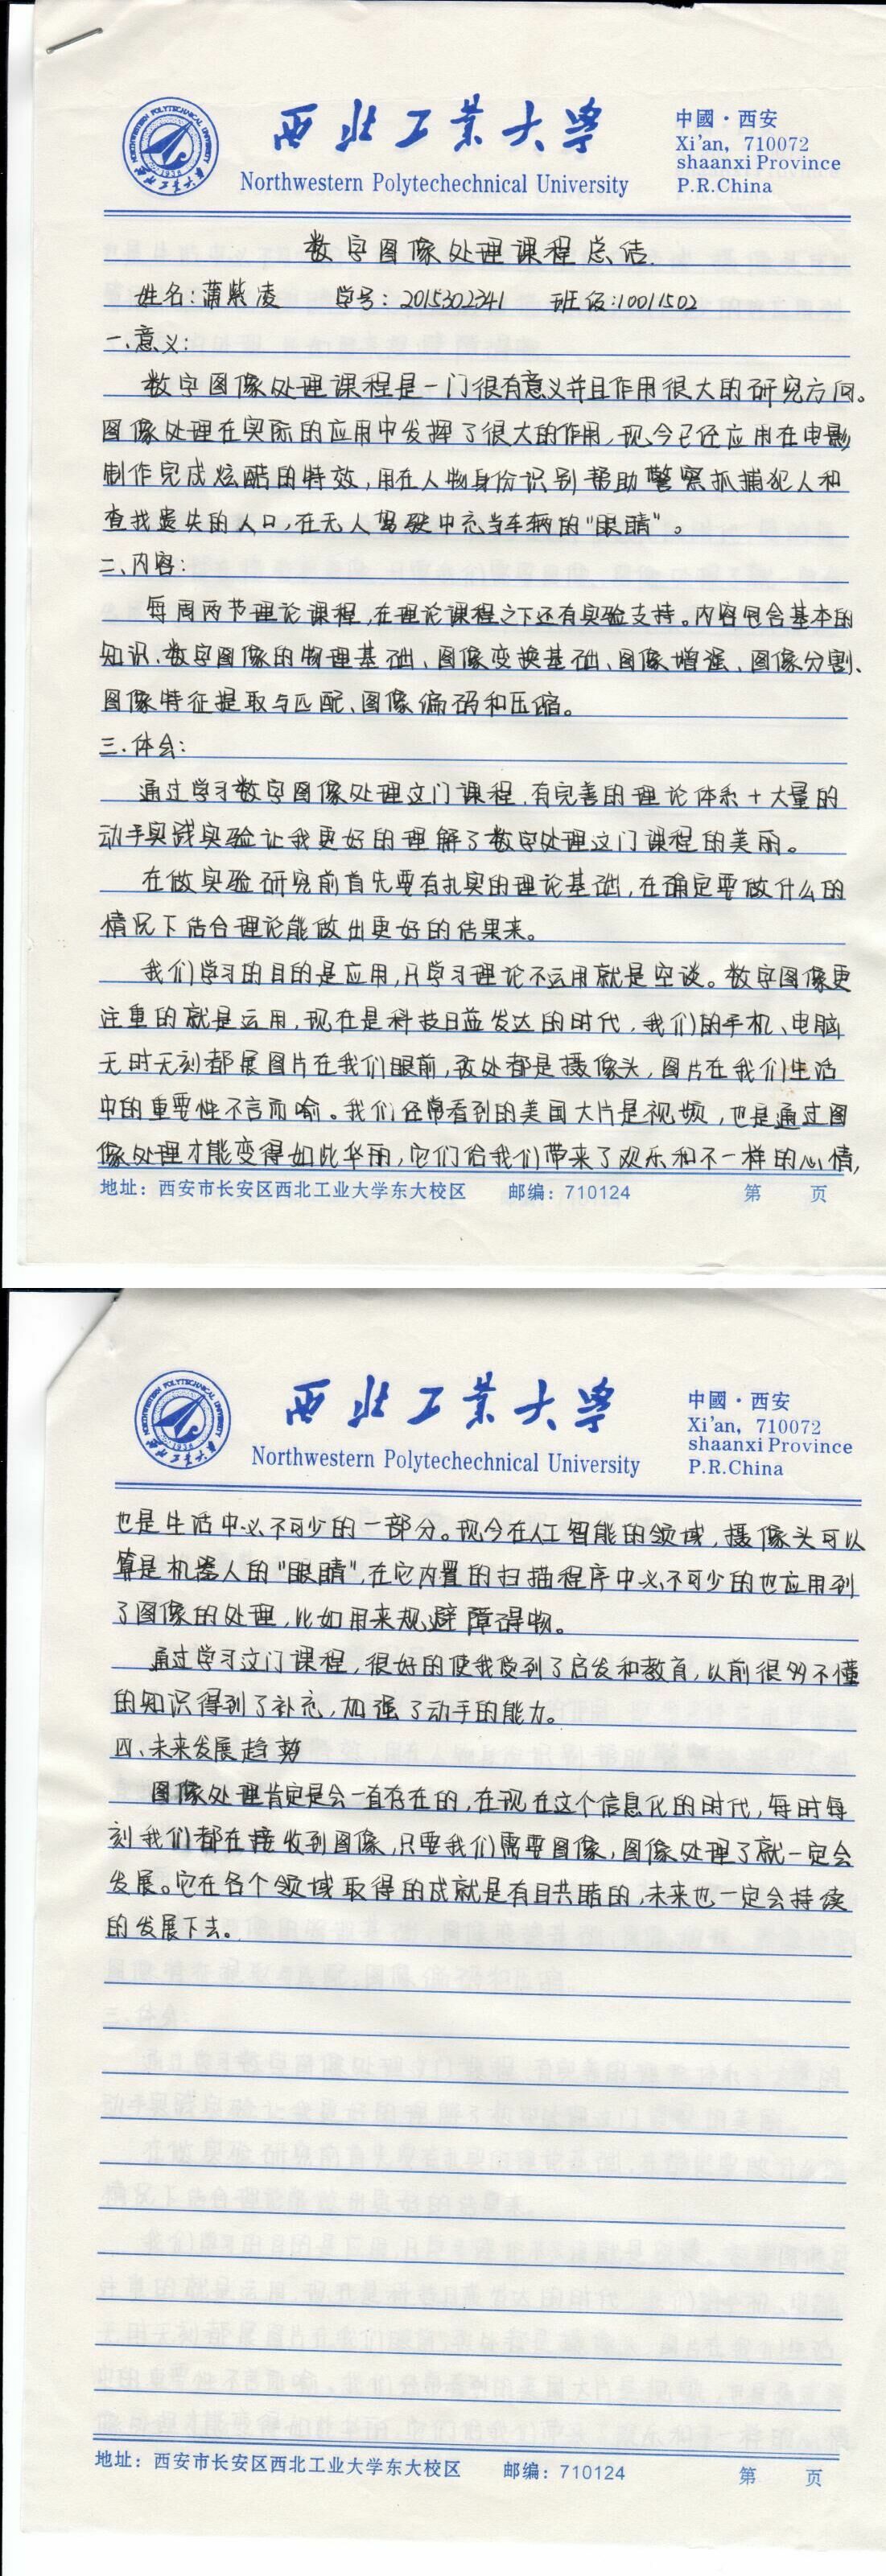 西北工業大學
Northwestern Polytechechnical University
中國·西安
Xi'an, 710072
shaanxi Province
P.R.China
数字图像处理课程总结.
姓名:蒲紫凌 学号:2015302341 班级:10011502
一.意义:
数字图像处理课程是一门很有意义并且作用很大的研究方向。
图像处理在实际的应用中发挥了很大的作用,现今已经应用在电影
制作完成炫酷的特效,用在人物身份识别帮助警察抓捕犯人和
查找遗失的人口,在无人驾驶中充当车辆的"眼睛"。
二、内容:
每周两节理论课程,在理论课程之下还有实验支持。内容包含基本的
知识、数字图像的物理基础、图像变换基础、图像增强、图像分割、
图像特征提取与匹配、图像编码和压缩。
三.体会:
通过学习数字图像处理这门课程,有完善的理论体系+大量的
动手实践实验让我更好的理解了数字处理这门课程的美丽。
在做实验研究前首先要有扎实的理论基础,在确定要做什么的
情况下结合理论能做出更好的结果来。
我们学习的目的是应用,只学习理论不运用就是空谈。数字图像更
注重的就是运用,现在是科技日益发达的时代,我们的手机、电脑
无时无刻都展图片在我们眼前,到处都是摄像头,图片在我们生活
中的重要性不言而喻。我们经常看到的美国大片是视频,也是通过图
像处理才能变得如此华丽,它们给我们带来了欢乐和不一样的心情,
地址:西安市长安区西北工业大学东大校区 邮编:710124 第 页
西北工業大學
Northwestern Polytechechnical University
中國·西安
Xi'an, 710072
shaanxi Province
P.R.China
也是生活中必不可少的一部分。现今在人工智能的领域,摄像头可以
算是机器人的"眼睛",在它内置的扫描程序中必不可少的也应用到
了图像的处理,比如用来规避障碍物。
通过学习这门课程,很好的使我受到了启发和教育,以前很多不懂
的知识得到了补充,加强了动手的能力。
四、未来发展趋势
图像处理肯定是会一直存在的,在现在这个信息化的时代,每时每
刻我们都在接收到图像,只要我们需要图像,图像处理了就一定会
发展。它在各个领域取得的成就是有目共睹的,未来也一定会持续
的发展下去。
地址:西安市长安区西北工业大学东大校区 邮编:710124 第 页